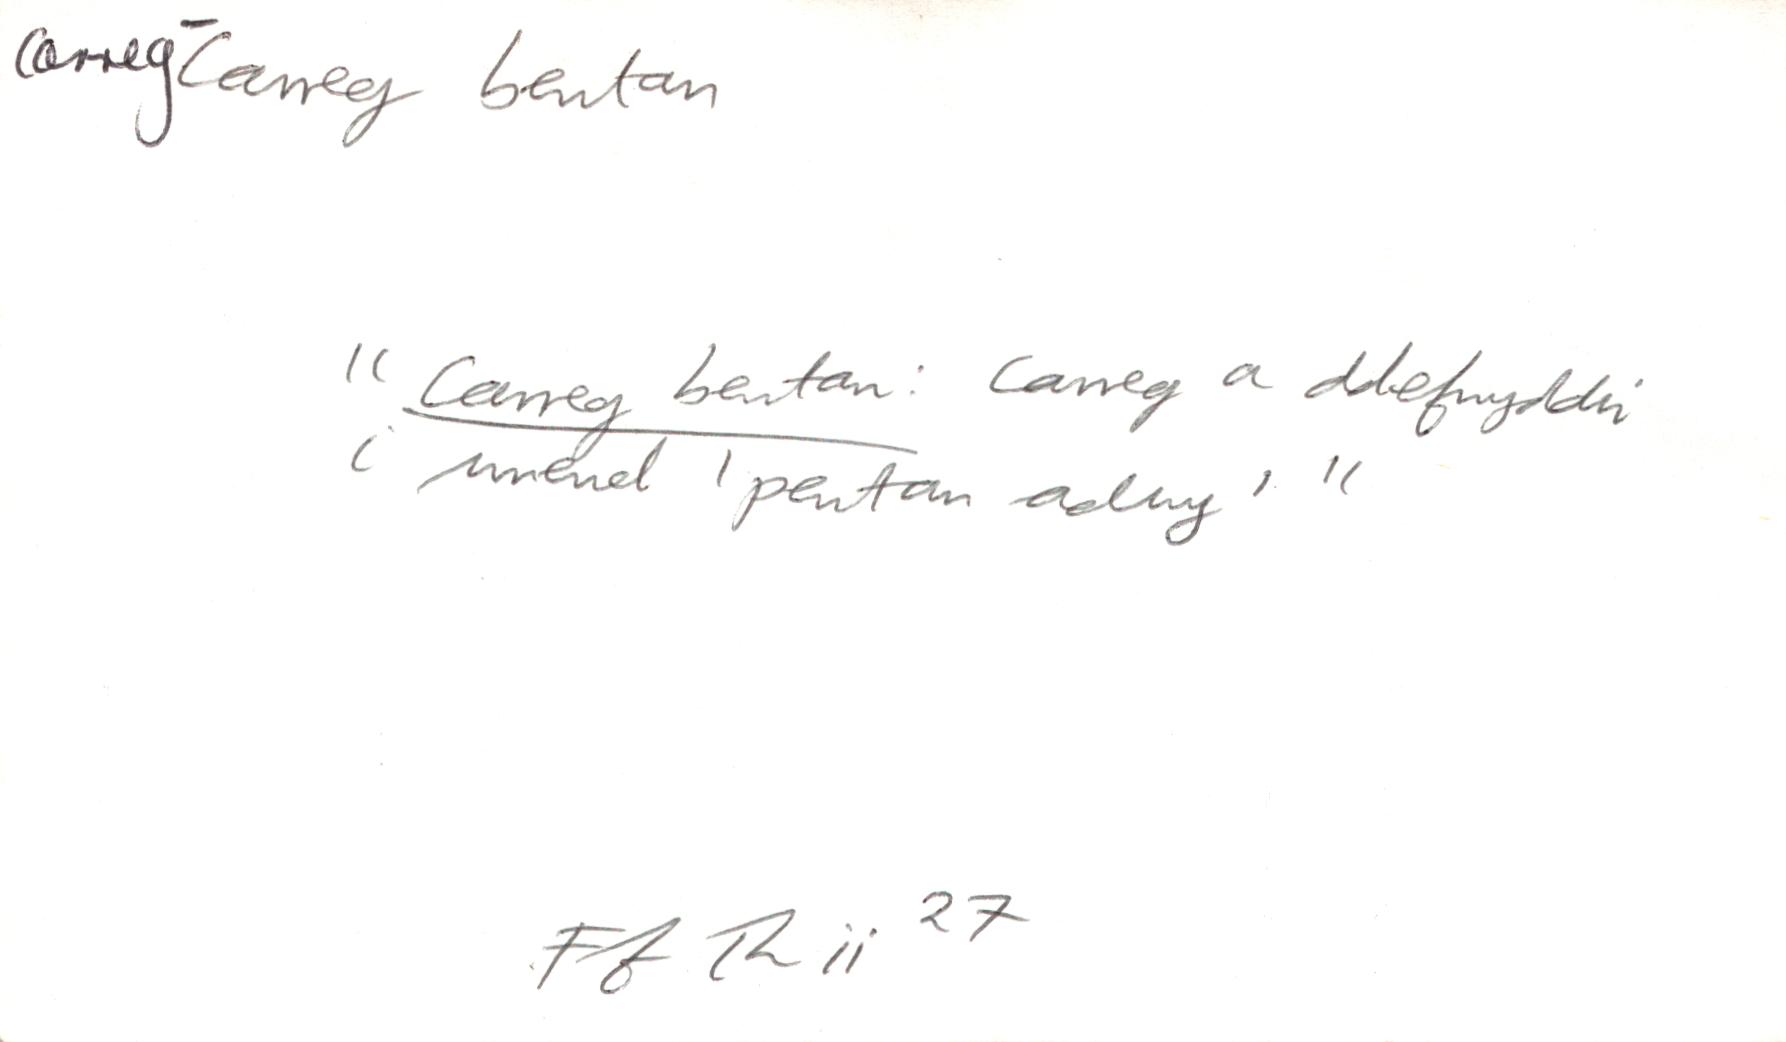 carreg - Carreg bentan
" Carreg bentan: Carreg a ddefnyddir
i wneud 'pentan adwy' "
Ff Th ii 27